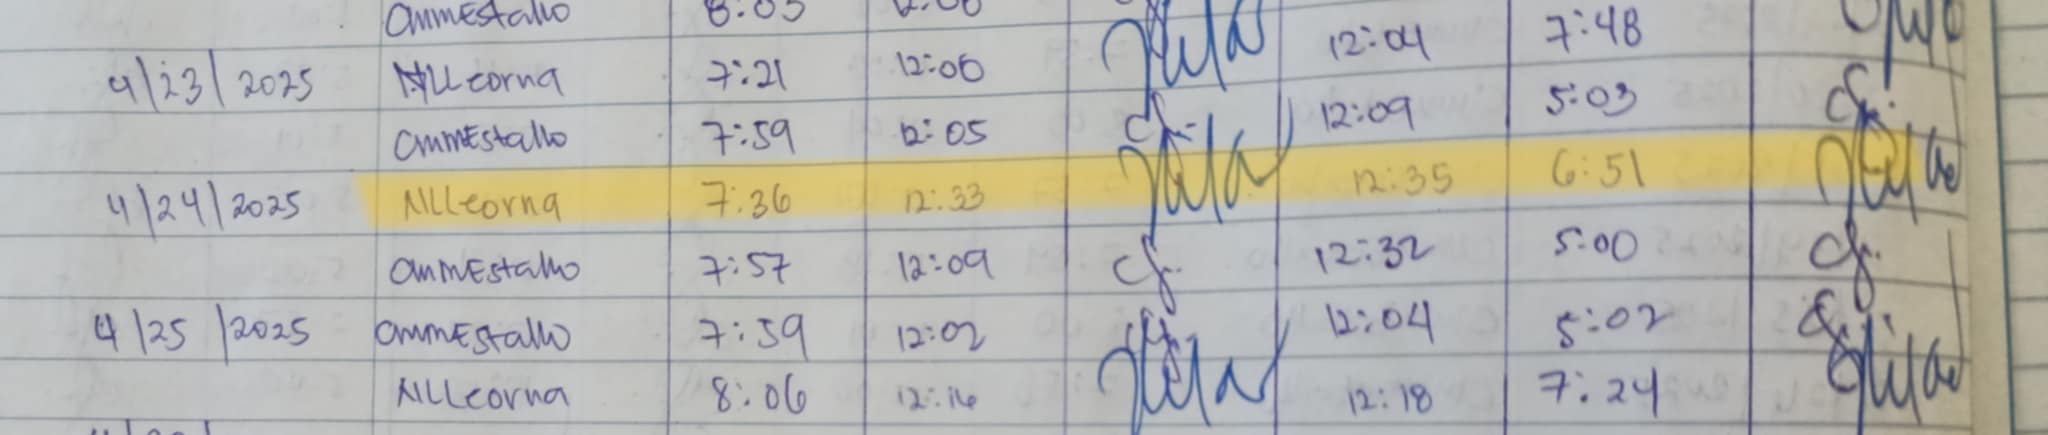 CMMEstallo 8:03 12:06
4/23/2025 NLLeorna 7:21 12:06 12:04 7:48
CMMEstallo 7:59 12:05 12:09 5:03
4/24/2025 NLLeorna 7:36 12:33 12:35 6:51
CMMEstallo 7:57 12:09 12:32 5:00
4/25/2025 CMMEstallo 7:59 12:02 12:04 5:02
NLLeorna 8:06 12:16 12:18 7:24